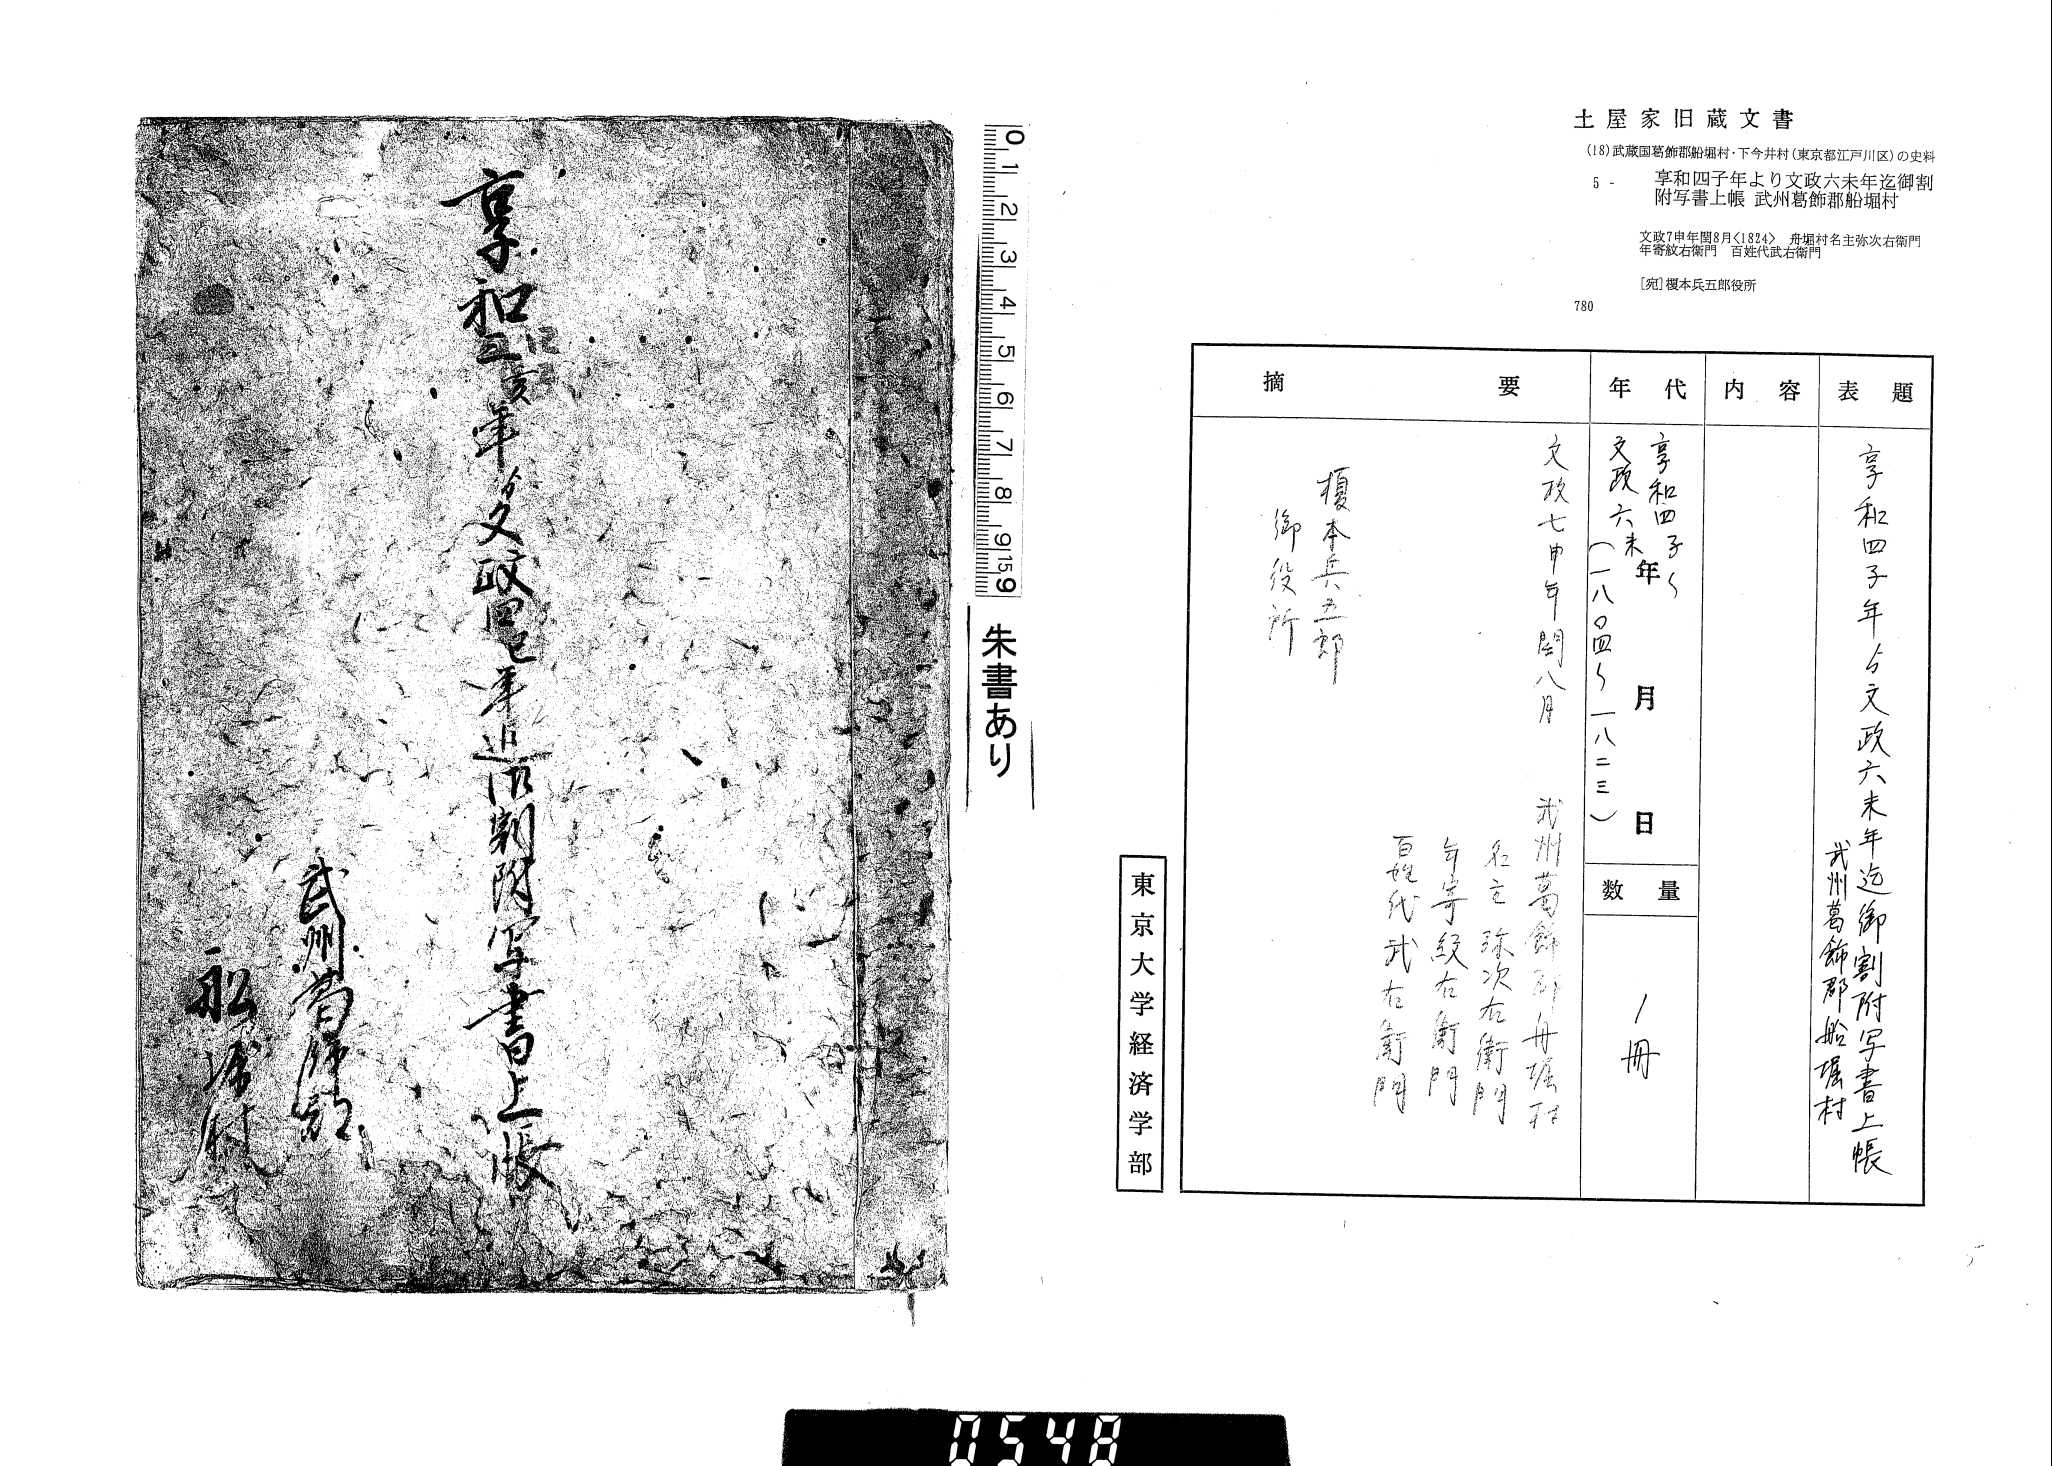 土屋家旧蔵文書
(18)武蔵国葛飾郡船堀村・下今井村(東京都江戸川区)の史料
5 - 享和四子年より文政六未年迄御割
附写書上帳 武州葛飾郡船堀村
文政7申年閏8月<1824> 舟堀村名主弥次右衛門
年寄紋右衛門 百姓代武右衛門
[宛]榎本兵五郎役所
780
表題
享和四子年ゟ文政六未年迄御割附写書上帳
武州葛飾郡船堀村
内容
年代
享和四子〜
文政六未年
(一八〇四〜一八二三)
月
日
数量
1冊
摘要
文政七申年閏八月
武州葛飾郡舟堀村
名主弥次右衛門
年寄紋右衛門
百姓代武右衛門
榎本兵五郎
御役所
東京大学経済学部
0 1 2 3 4 5 6 7 8 9 15 9
朱書あり
享和三亥年ゟ文政四巳年迄御割附写書上帳
武州葛飾郡
船堀村
0548